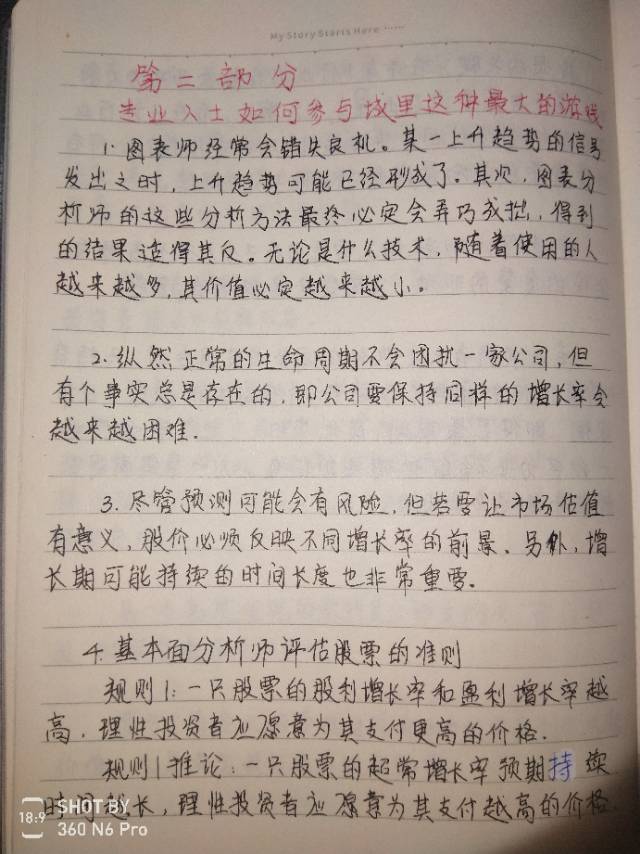 My Story Starts Here ······
第二部分
专业人士如何参与城里这种最大的游戏
1. 图表师经常会错失良机。某一上升趋势的信号
发出之时，上升趋势可能已经形成了。其次，图表分
析师的这些分析方法最终必定会弄巧成拙，得到
的结果适得其反。无论是什么技术，随着使用的人
越来越多，其价值必定越来越小。
2. 纵然正常的生命周期不会困扰一家公司，但
有个事实总是存在的，即公司要保持同样的增长率会
越来越困难.
3. 尽管预测可能会有风险，但若要让市场估值
有意义，股价必须反映不同增长率的前景。另外，增
长期可能持续的时间长度也非常重要。
4. 基本面分析师评估股票的准则
规则1: 一只股票的股利增长率和盈利增长率越
高，理性投资者应愿意为其支付更高的价格.
规则1推论: 一只股票的超常增长率预期持续
时间越长，理性投资者应愿意为其支付越高的价格.
18:9 SHOT BY
360 N6 Pro